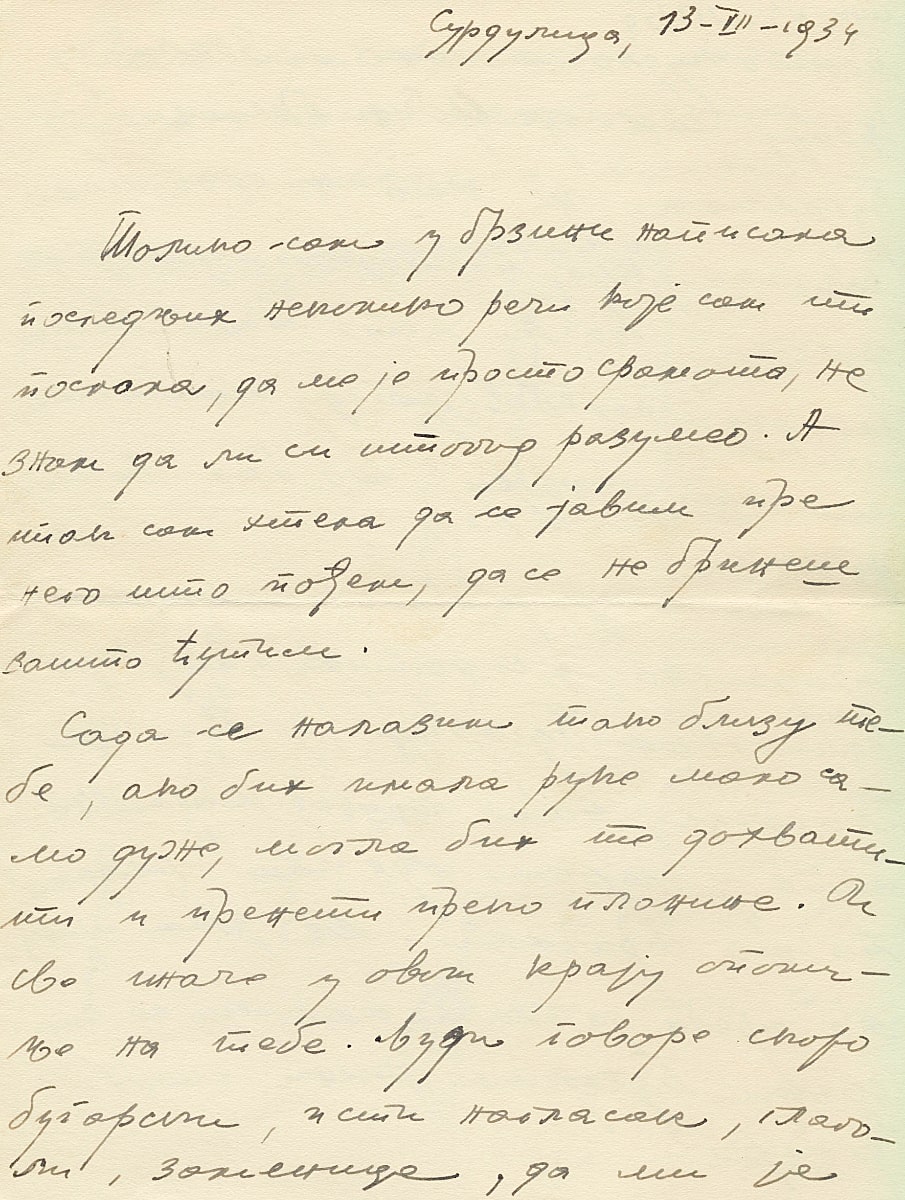 Сурдулица, 13-VII-1934
Толико сам у брзини написала
последњих неколико речи које сам ти
послала, да ме је просто срамота, не
знам да ли си штогод разумео. А
ипак сам хтела да се јавим пре
него што пођем, да се не бринеш
зашто ћутим.
Сада се налазим тако близу те-
бе, ако бих имала руке мало са-
мо дуже, могла бих те дохвати-
ти и пренети преко планине. И
све иначе у овом крају опоми-
ње на тебе. Људи говоре скоро
бугарски, исти нагласак, глаго-
ли, заменице, да ми је